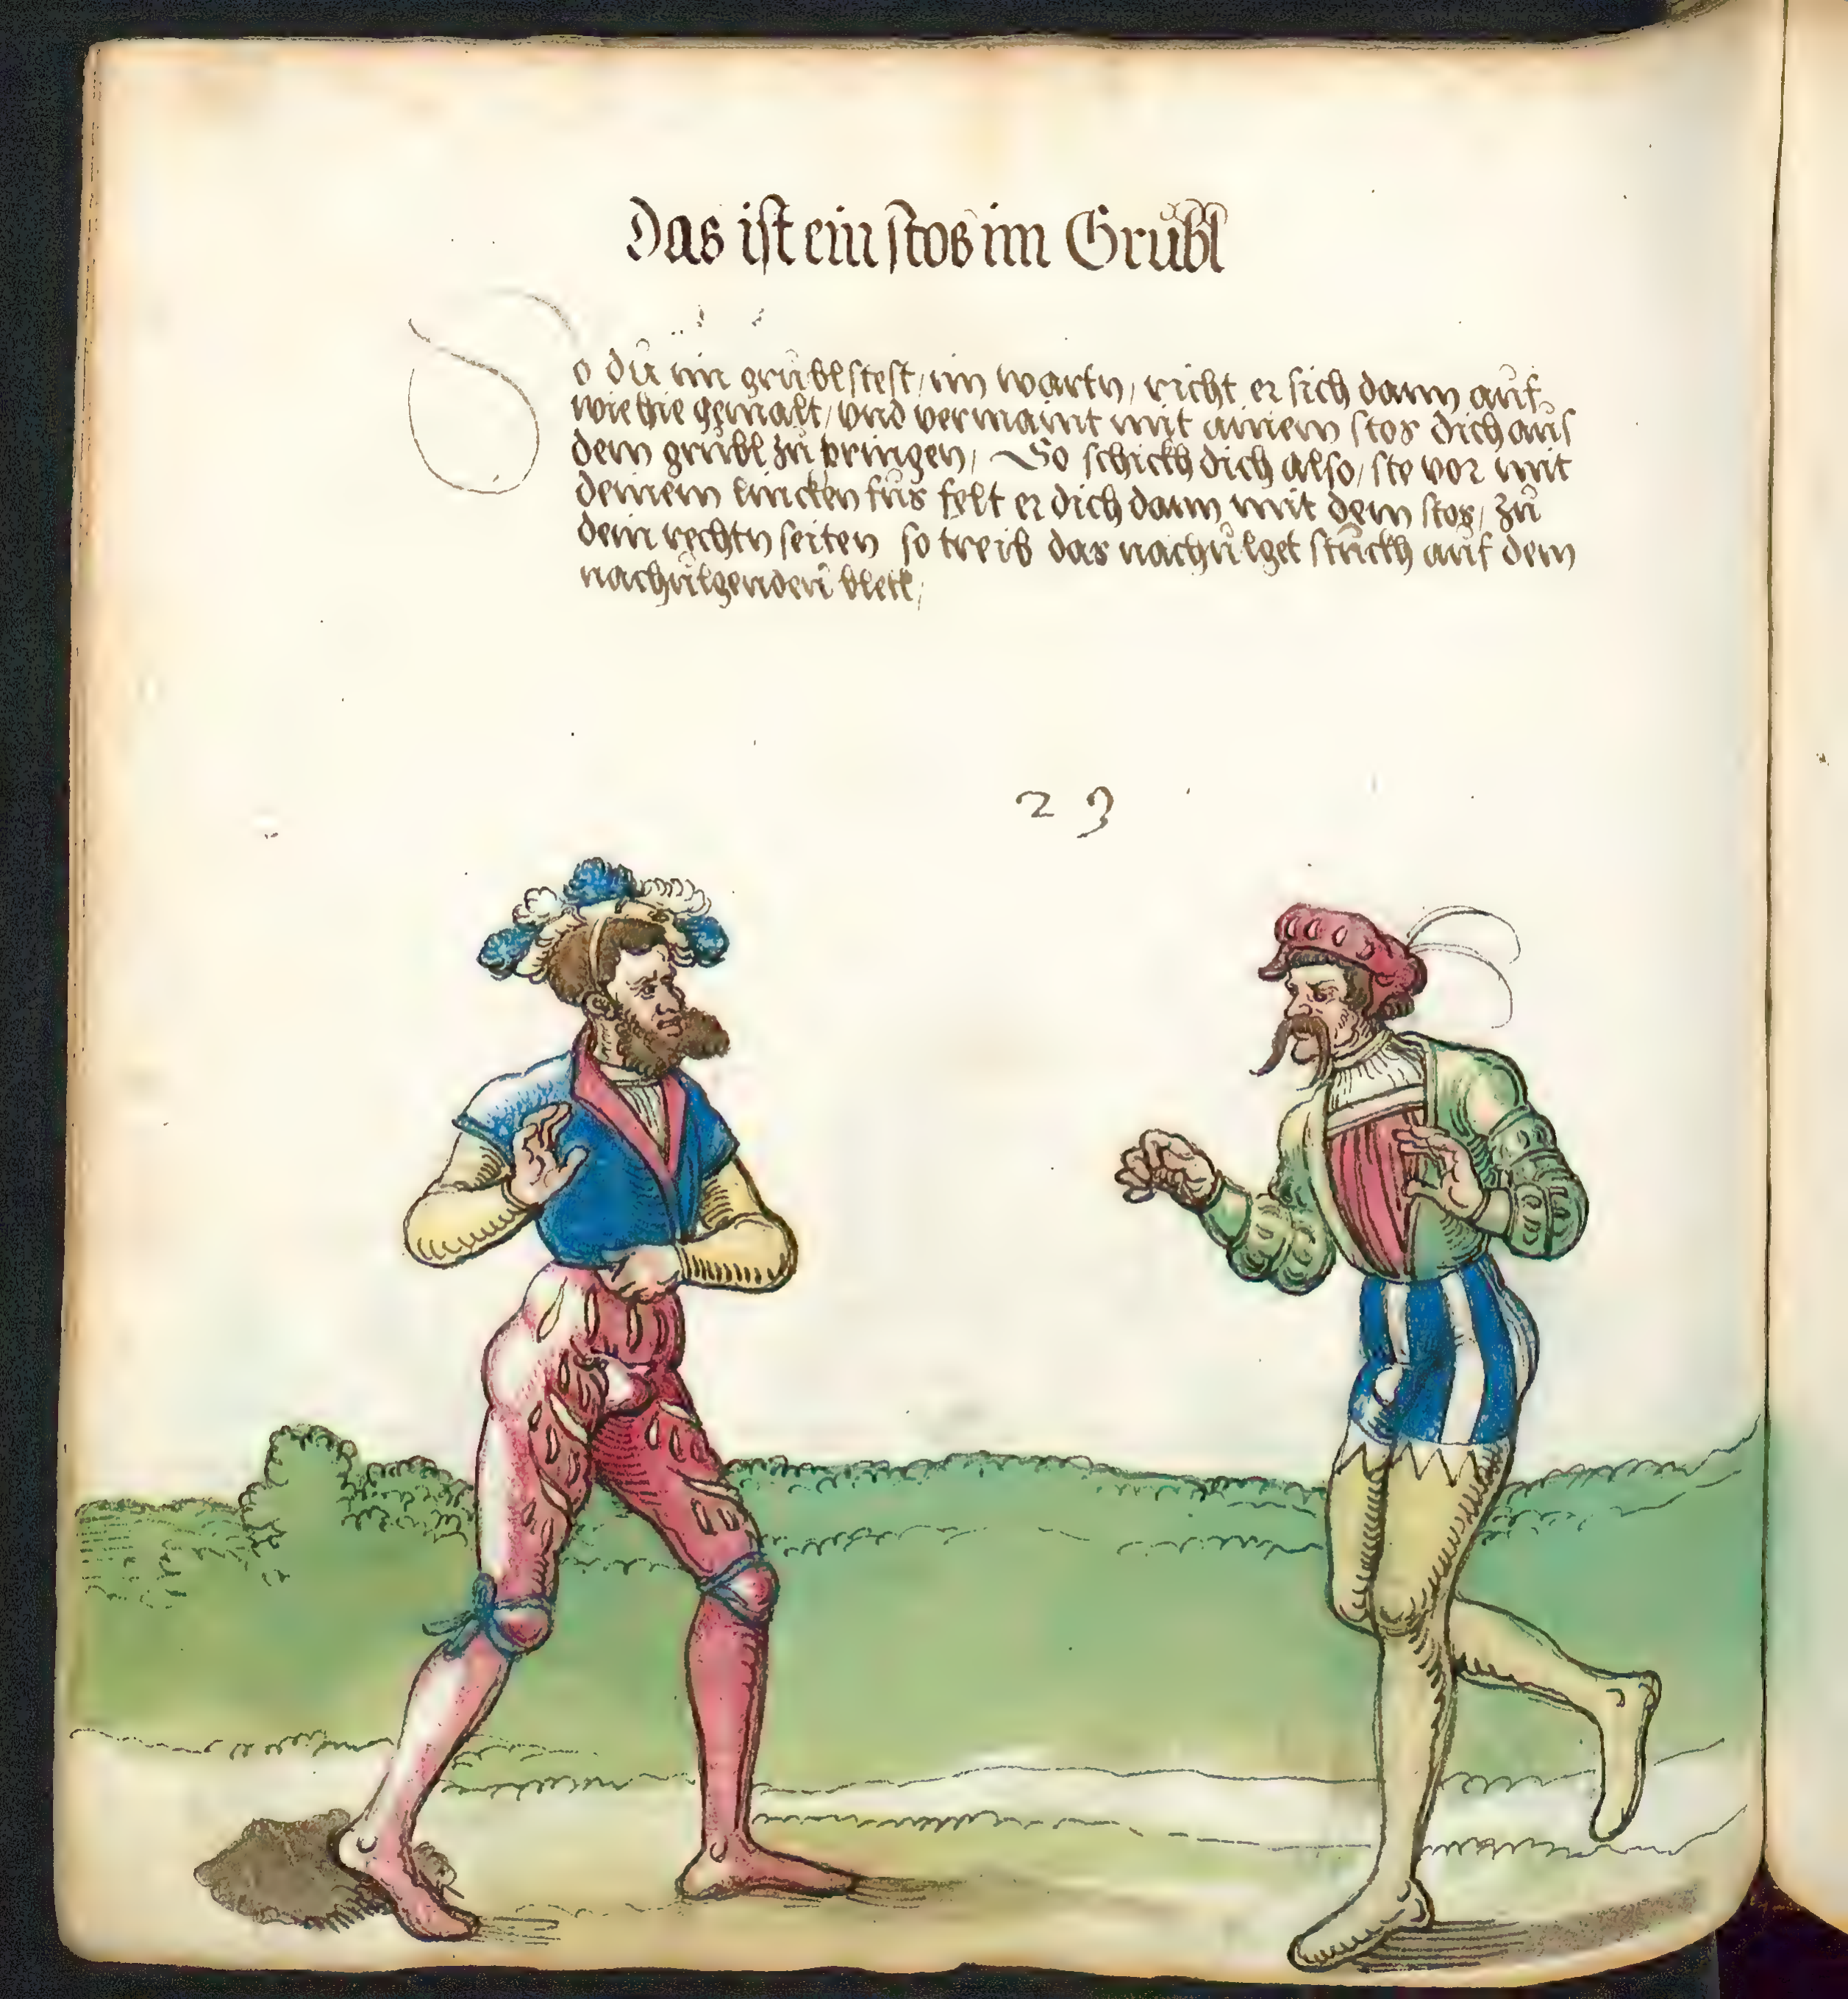 Das ist ein stos im Grübl
So dú im grúbl stest / im wartn / richt er sich dann aúf
wie hie gemalt / vnd vermaint mit ainem stos dich aús
dem grúbl zú pringen / So schickh dich also / ste vor mit
deinem lincken fús felt er dich dann mit dem stos / zú
dein rechtn seiten so treib das nachúlget stúckh aúf dem
nachúlgenden blett /
2 9